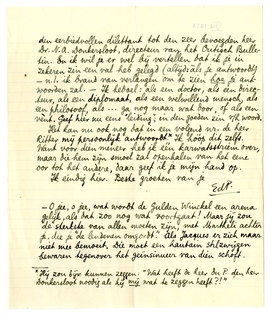 den eerbiedvollen dilettant tot den zeer bevoegden heer
Dr. N.A. Donkersloot, directeur van het Critisch Bulle-
tin. En ik wil je er wel bij vertellen dat ik je in
zekeren zin een val heb gelegd (altijd: als je antwoordt)
— n.l. ik brand van verlangen om te zien hoe je ant-
woorden zal. — Ik bedoel: als een doctor, als een direc-
teur, als een diplomaat, als een welwillend mensch, als
een philosoof, als ... ga nog maar wat door, of als een
vent. Geef hier nu eens 'leiding', in den goeden zin v/h woord.
Het kan nu ook nog dat in een volgend nr. de heer
Ritter mij persoonlijk "antwoordt". Ik hoop dit zelfs.
Want voor dien meneer heb ik een karwatsstriem over,
maar die hem zijn smoel zal openhalen van het eene
oor tot het andere, daar geef ik je mijn hand op.
Ik eindig hier. Beste groeten van je
EdP.
— O jee, o jee, wat wordt de Gulden Winckel een arena
gelijk, als dat zoo nog wat voortgaat! Maar jij zou
de sterkste van allen moeten zijn, met Marthels achter
je, die je "de lendenen omgordt". Als Jacques er zich maar
niet mee bemoeit. Die moet een hautain stilzwijgen
bewaren tegenover het geïnsinueer van dien schoft.
* Hij zou bijv. kunnen zeggen: "Wat heeft de heer Du P. den heer
Donkersloot noodig als hij mij wat te zeggen heeft?!"